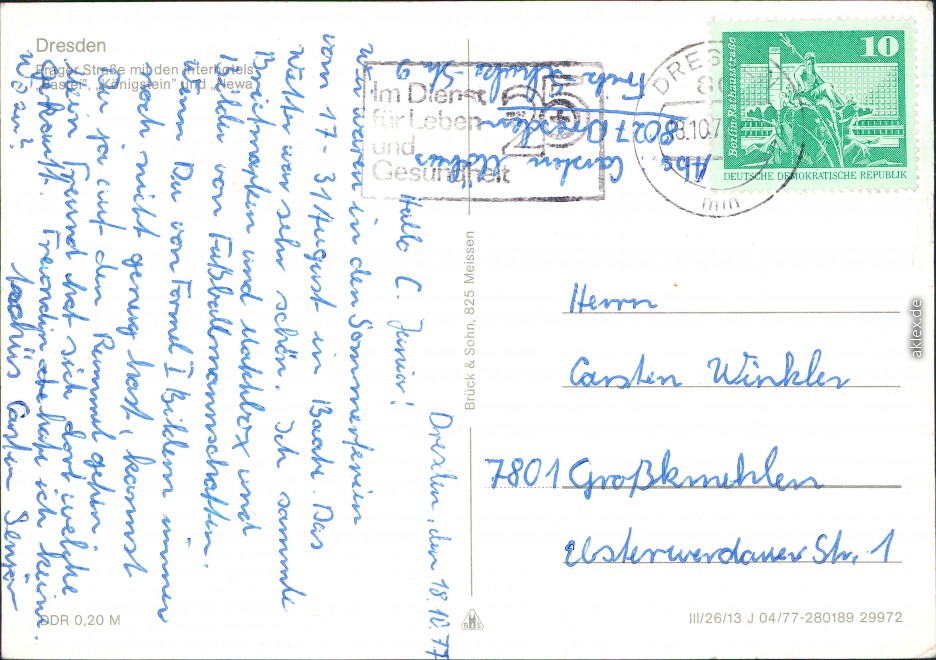 Dresden
Prager Straße mit den Interhotels
"Bastei", "Königstein" und "Newa"
Im Dienst
für Leben
und
Gesundheit
25
DRESDEN
8.10.7
min
10
Berlin, Rathausstraße
DEUTSCHE DEMOKRATISCHE REPUBLIK
Abs.
Carsten
8027 Dresden
Str. 9
Dresden, den 18.10.77
Hallo C. Junior!
Wir waren in den Sommerferien
vom 17. - 31 August in Baabe. Das
Wetter war sehr schön. Ich sammle
Briefmarken und Matchbox und
Bilder von Fußballmannschaften.
Wenn Du von Formel I Bildern immer
noch nicht genug hast, kannst
Du ja auf den Rummel gehen.
Mein Freund hat sich dort welche
gekauft. Freundin habe ich keine.
Carsten Senior
Herrn
Carsten Winkler
7801 Großkmehlen
Elsterwerdauer Str. 1
Brück & Sohn, 825 Meissen
B&S
DDR 0,20 M
III/26/13 J 04/77-280189 29972
aklex.de